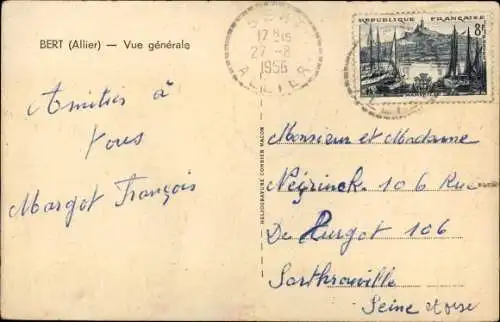 BERT (Allier) — Vue générale
BERT
17 H 15
27 - 8
1956
ALLIER
REPUBLIQUE FRANÇAISE
8F
Amitiés à
Vous
Margot François
HELIOGRAVURE COMBIER MACON
Monsieur et Madame
Neyrinck 106 Rue
De Turgot 106
Sarthrouville
Seine et oise